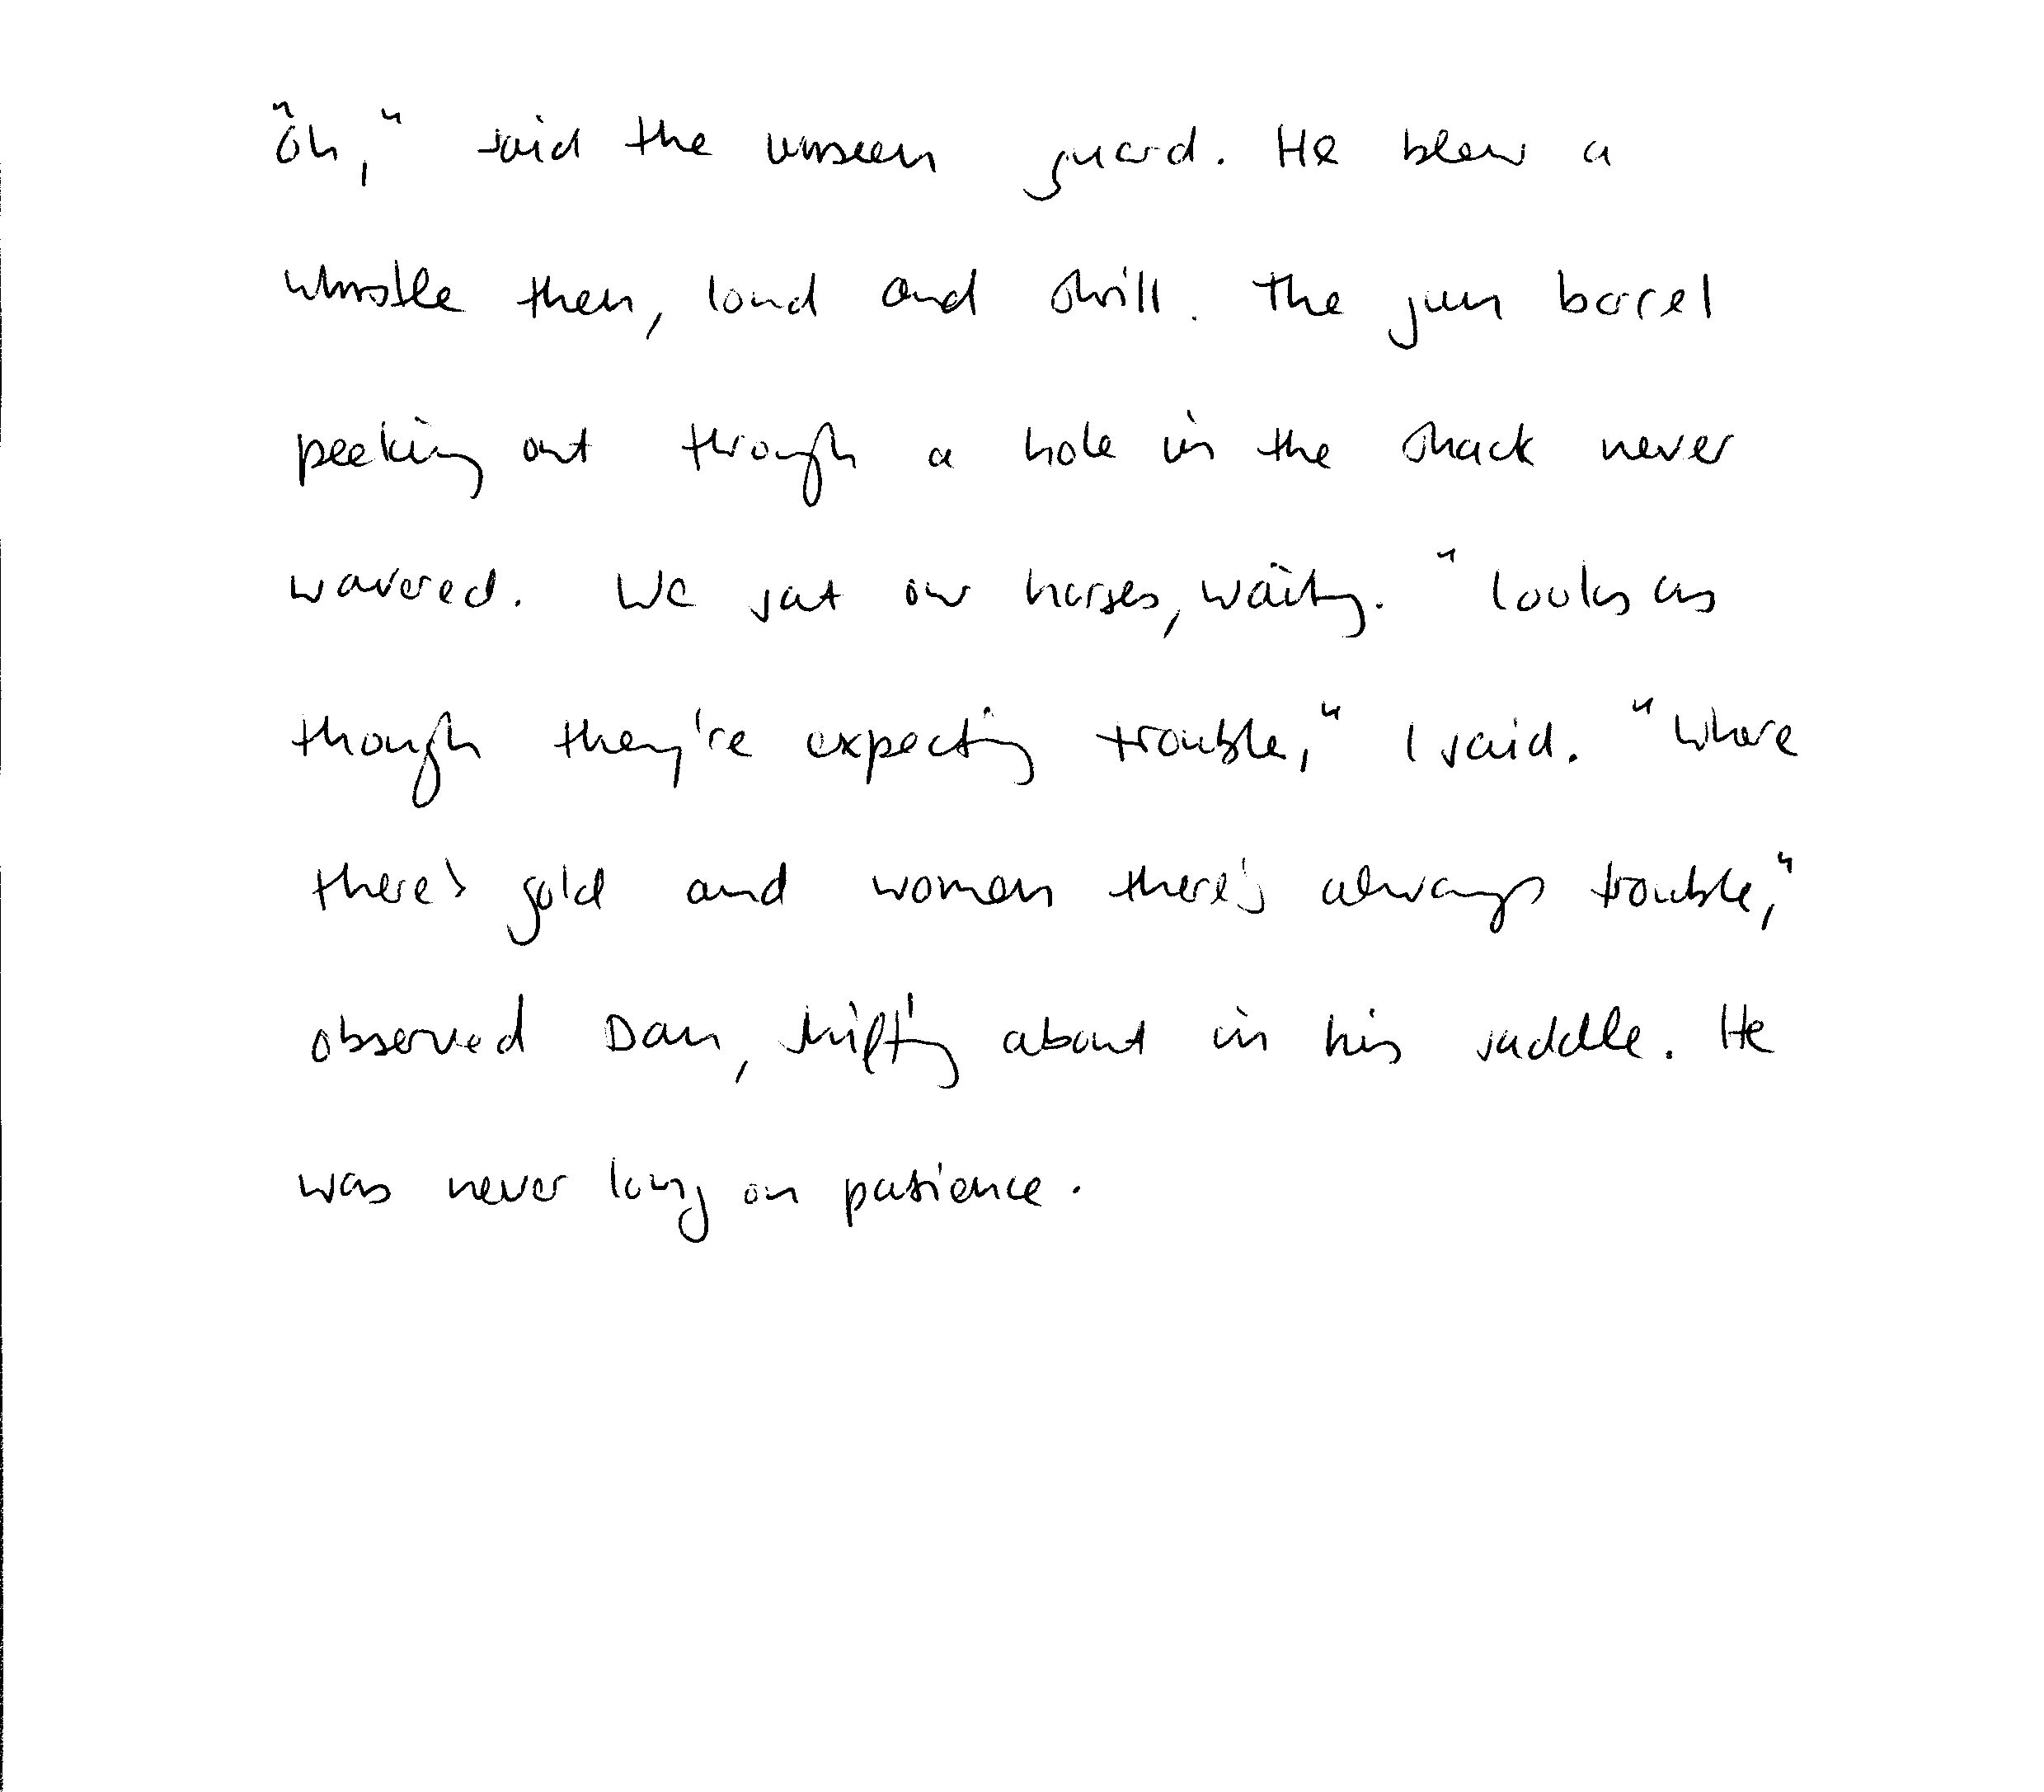 "Oh," said the unseen guard. He blew a
whistle then, loud and shrill. The gun barel
peeking out through a hole in the shack never
wavered. We sat our horses, waiting. "Looks as
though they're expecting trouble," I said. "Where
there's gold and women there's always trouble,"
observed Dan, shifting about in his saddle. He
was never long on patience.